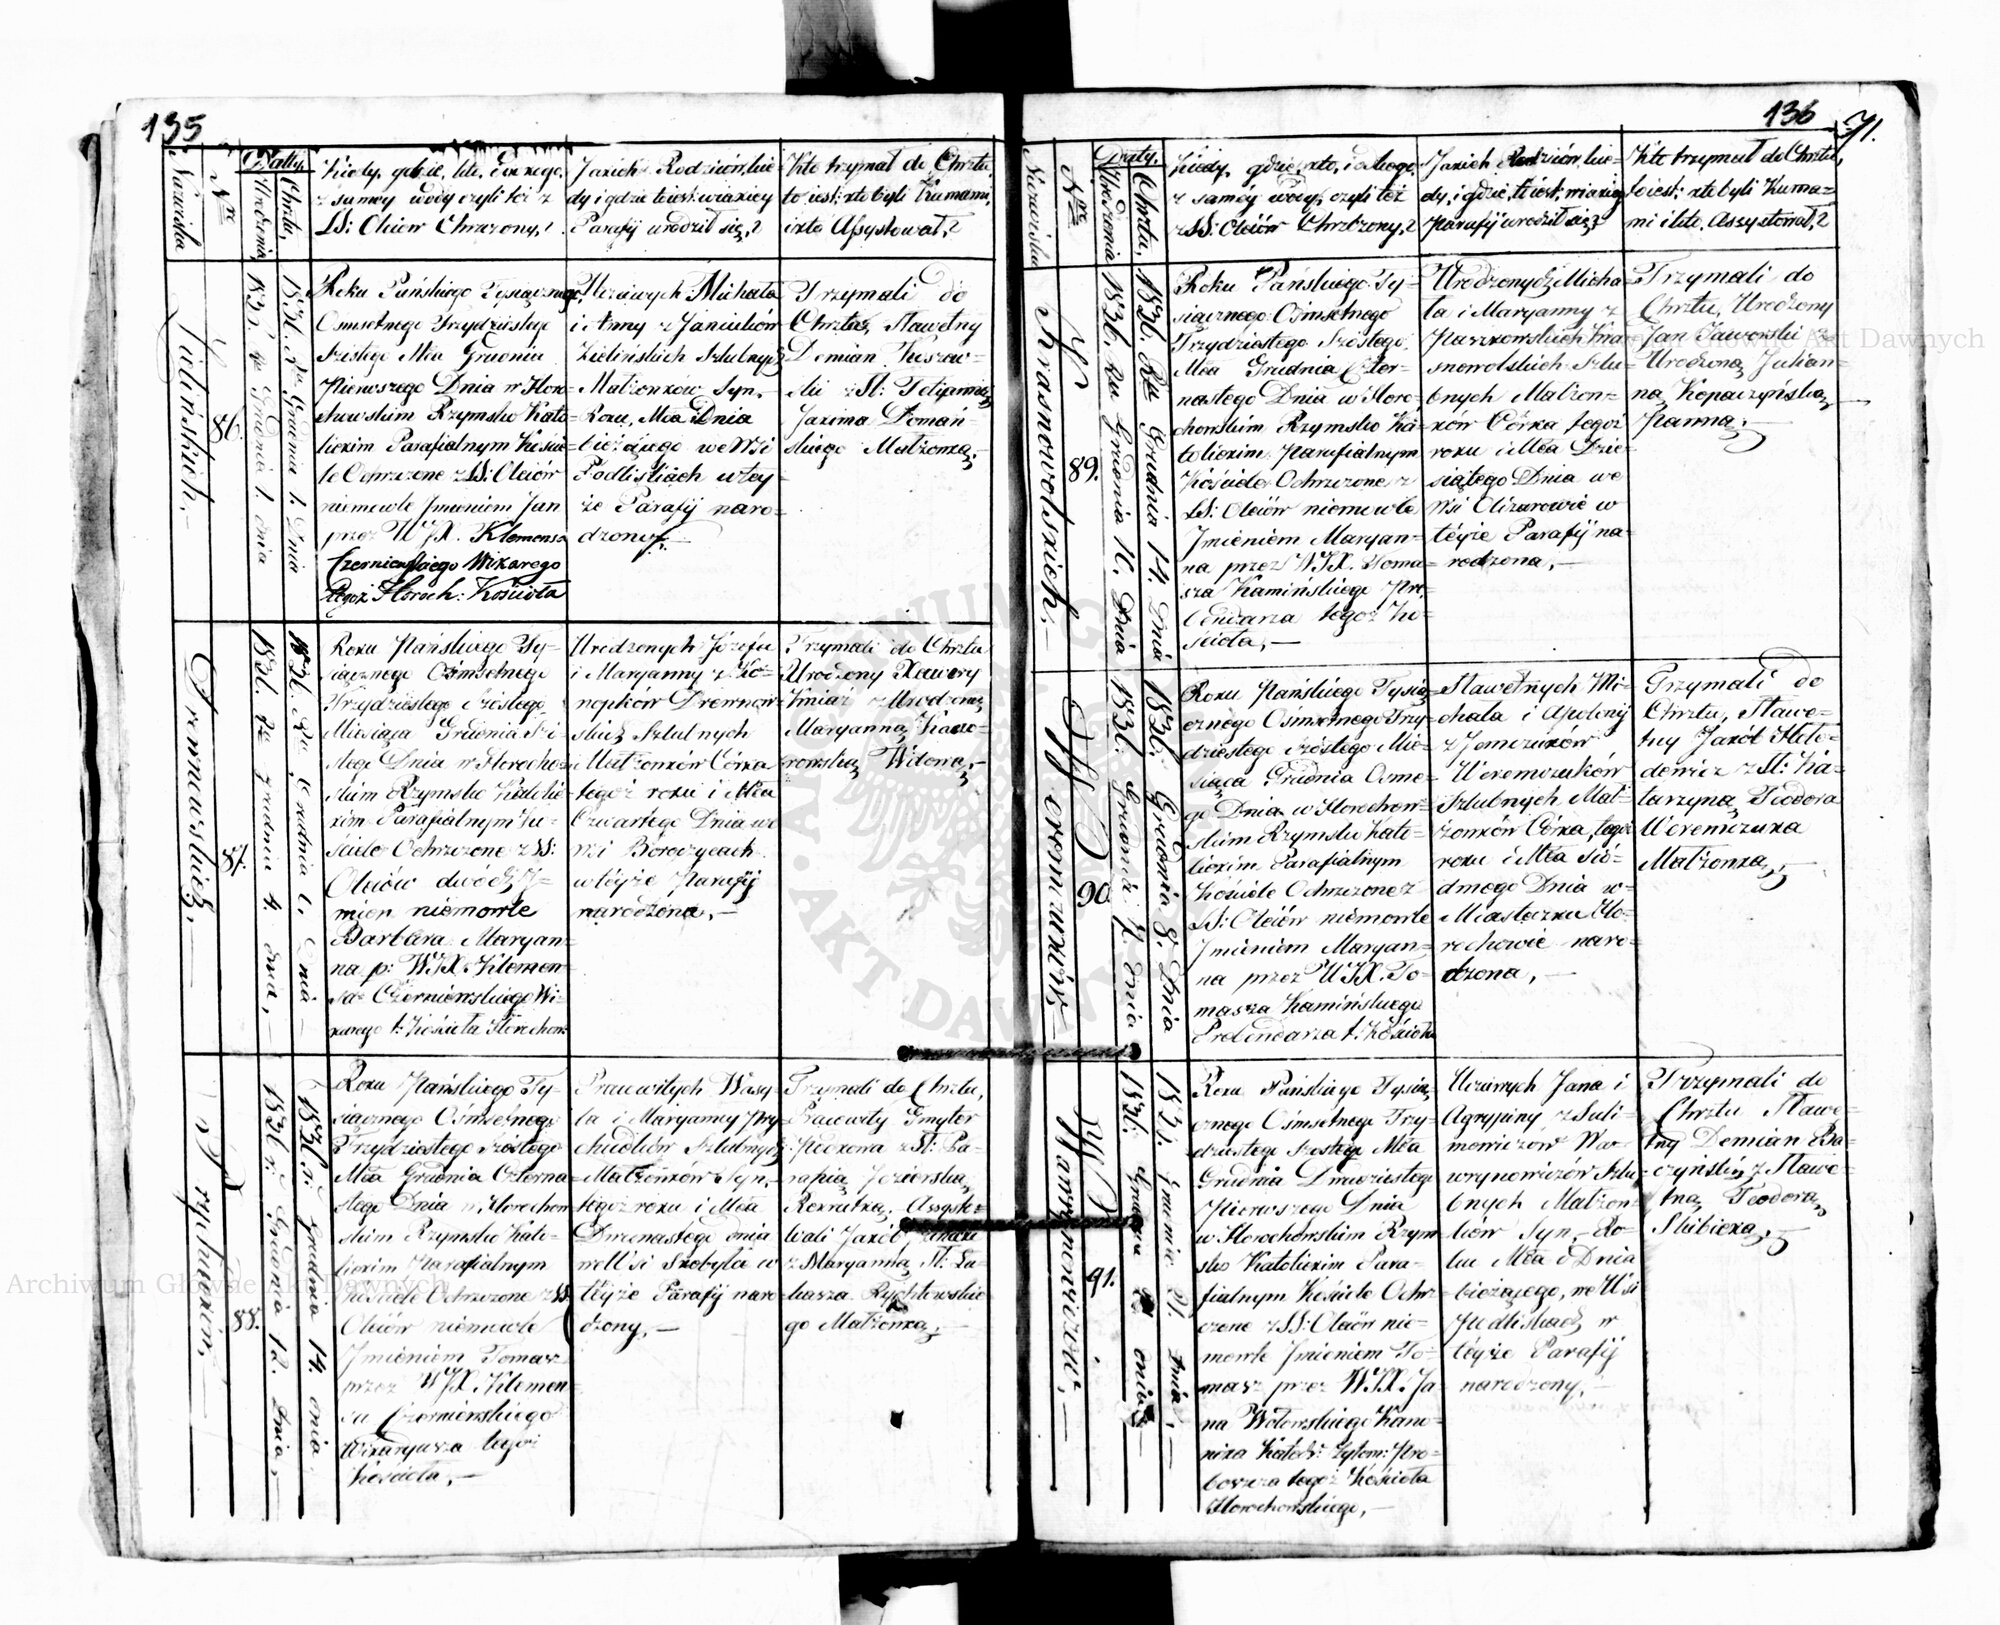 135
Nazwiska
Nro
Datty.
Urodzenia
Chrztu,
Kiedy, gdzie, kto, i z kogo,
z samey wody czyli też z
SS: Oleiów Chrzczony,?
Jakich Rodziców, kie-
dy i gdzie to iest: w iakiey
Parafij urodził się,?
Kto trzymał do Chrztu,
to iest: kto byli Kumami,
i kto Assystował,?
Zielińskich.
86.
1836. Ru Grudnia 1. dnia
1836. Ru Grudnia 1. Dnia
Roku Pańskiego Tysiącznego
Osmsetnego Trzydziestego
Szóstego Mca Grudnia
Pierwszego Dnia w Horo-
chowskim Rzymsko Kato-
lickim Parafialnym Koście-
le Ochrzczone z SS: Oleiów
niemowle Jmieniem Jan
przez WJX. Klemensa
Czerniewskiego Wikarego
tegoż Horoch: Kościoła
Uczciwych Michała
i Anny z Janiuków
Zielińskich Szlubnych
Małżonków Syn,
Roku, Mca i Dnia
bieżącego we Wsi
Podliskach w tey-
że Parafij naro-
dzony.
Trzymali do
Chrztu, Sławetny
Demian
z Sł: Pelagią
Jakima Domań-
skiego Małżonką.
Drewnowskich.
87.
1836. Ru Grudnia 4. dnia,
1836. Ru Grudnia 6. Dnia
Roku Pańskiego Ty-
siącznego Osmsetnego
Trzydziestego Szóstego
Miesiąca Grudnia Szó-
stego Dnia w Horocho-
skim Rzymsko Katolic-
kim Parafialnym Ko-
ściele Ochrzczone z SS:
Oleiów dwóch J-
mion niemowle
Barbara Maryan-
na p: WJX. Klemen-
sa Czerniewskiego Wi-
karego t: Kościoła Horochow:
Urodzonych Józefa
i Maryanny z Ko-
nopków Drewnow-
skich Szlubnych
Małżonków Córka
tegoż roku i Mca
Czwartego Dnia we
Wsi Boroczycach
w teyże Parafij
narodzona,
Trzymali do Chrztu
Urodzony Xawery
Kniaź z Urodzoną
Maryanną
Wdową,
Prychudkich,
88.
1836 r. Grudnia 12. Dnia,
1836. r. Grudnia 14. dnia.
Roku Pańskiego Ty-
siącznego Osmsetnego
Trzydziestego Szóstego
Mca Grudnia Czterna-
stego Dnia w Horochow-
skim Rzymsko Kato-
lickim Parafialnym
Kościele Ochrzczone z SS
Oleiów niemowle
Jmieniem Tomasz
przez WJX. Klemen-
sa Czerniewskiego
Wikaryusza tegoż
Kościoła,
Pracowitych Wasy-
la i Maryanny Pry-
chudków Szlubnych
Małżonków Syn,
tegoż roku i Mca
Dwunastego dnia
we Wsi Szobyla w
teyże Parafij naro-
dzony,
Trzymali do Chrztu,
Pracowity Gmyter
z Sł: Pa-
rapią Jezierską,
Rekrutką. Assysto-
wali Jakób
z Maryanną Sł: Łu-
kasza Rychtowskie-
go Małżonką,
136
71.
Nazwiska
Nro
Datty.
Urodzenia
Chrztu,
Kiedy, gdzie, kto, i z kogo,
z saméy wody, czyli też
z SS: Oleiów Chrzczony,?
Jakich Rodziców, kie-
dy, i gdzie, to iest: w iakiey
Parafij urodził się,?
Kto trzymał do Chrztu,
to iest: kto byli Kuma-
mi i kto Assystował,?
Krasnowolskich.
89.
1836. Ru Grudnia 10. Dnia
1836. Ru Grudnia 14. Dnia
Roku Pańskiego Ty-
siącznego Osmsetnego
Trzydziestego Szóstego
Mca Grudnia Czter-
nastego Dnia w Horo-
chowskim Rzymsko Ka-
tolickim Parafialnym
Kościele Ochrzczone z
SS: Oleiów niemowle
Jmieniem Maryan-
na przez WJX. Toma-
sza Kamińskiego Pre-
bendarza tegoż Ko-
ścioła,
Urodzonych Micha-
ła i Maryanny z
Kra-
snowolskich Szlu-
bnych Małżon-
ków Córka tegoż
roku i Mca Dzie-
siątego Dnia we
Wsi Ożurowie w
teyże Parafij na-
rodzona,
Trzymali do
Chrztu, Urodzony
Jan Jaworski z
Urodzoną Julian-
ną Kopaczyńską,
Panną.
Weremczuków
90.
1836. Grudnia 7. dnia
1836. Grudnia 8. Dnia
Roku Pańskiego Tysią-
cznego Osmsetnego Trzy-
dziestego Szóstego Mie-
siąca Grudnia Osme-
go Dnia w Horochow-
skim Rzymsko Kato-
lickim Parafialnym
Kościele Ochrzczone z
SS: Oleiów niemowle
Jmieniem Maryan-
na przez WJX. To-
masza Kamińskiego
Prebendarza t: Kościoła
Sławetnych Mi-
chała i Apolonij
z Jemczuków
Weremczuków
Szlubnych Mał-
żonków Córka, tegoż
roku i Mca Sió-
dmego Dnia w
Miasteczku Ho-
rochowie naro-
dzona,
Trzymali do
Chrztu, Sławe-
tny Jakób Hoło-
dewicz z Sł: Ka-
tarzyną Teodora
Weremczuka
Małżonką,
Wawrynowiczów,
91.
1836. Grudnia 21 dnia
1836. Grudnia 21. Dnia,
Roku Pańskiego Tysią-
cznego Osmsetnego Trzy-
dziestego Szóstego Mca
Grudnia Dwudziestego
Pierwszego Dnia
w Horochowskim Rzym-
sko Katolickim Para-
fialnym Kościele Ochrz-
czone z SS: Oleiów nie-
mowle Jmieniem To-
masz przez WJX. Ja-
na Wołowskiego Kano-
nika Katedr: Żytom: Pro-
boszcza tegoż Kościoła
Horochowskiego,
Uczciwych Jana i
Agrypiny z Suli-
mowiczów Waw-
rynowiczów Szlu-
bnych Małżon-
ków Syn, Ro-
ku Mca i Dnia
bieżącego, we Wsi
Podliskach w
teyże Parafij
narodzony,
Trzymali do
Chrztu Sławe-
tny Demian Ba-
czyński z Sławe-
tną Teodorą
Skibicką,
Archiwum Główne Akt Dawnych
Archiwum Główne Akt Dawnych